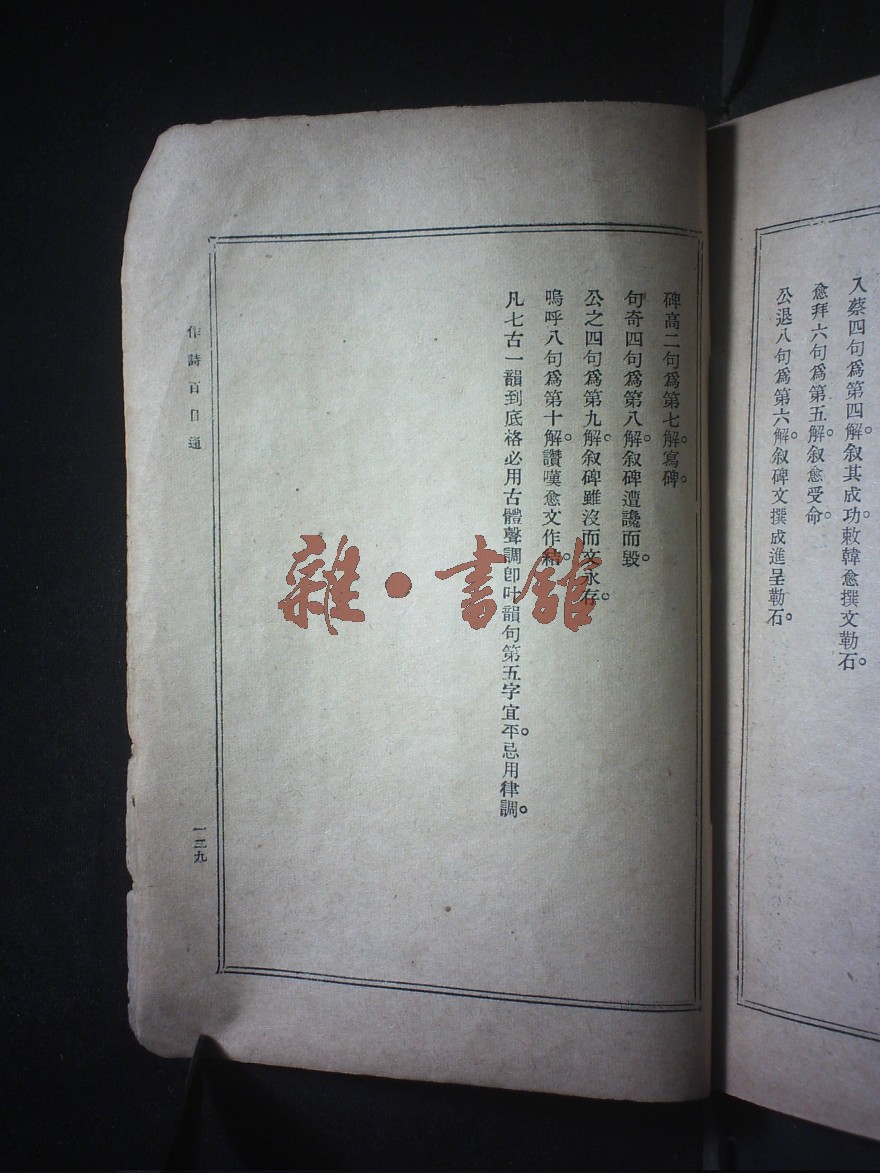 入蔡四句爲第四解。叙其成功。敕韓愈撰文勒石。
愈拜六句爲第五解。叙愈受命。
公退八句爲第六解。叙碑文撰成進呈勒石。
碑高二句爲第七解。寫碑。
句奇四句爲第八解。叙碑遭讒而毀。
公之四句爲第九解。叙碑雖沒而文永存。
嗚呼八句爲第十解。讚嘆愈文作結。
凡七古一韻到底格必用古體聲調卽叶韻句第五字宜平。忌用律調。
作詩百日通
一三九
雜·書館